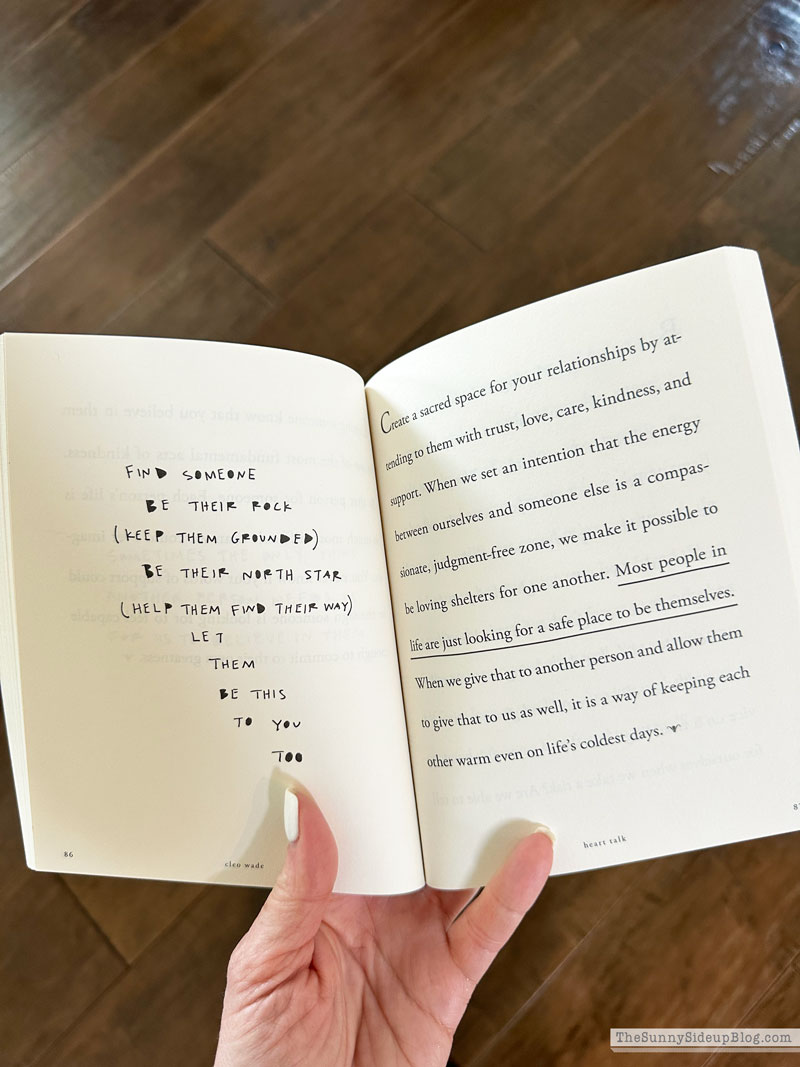 FIND SOMEONE
BE THEIR ROCK
(KEEP THEM GROUNDED)
BE THEIR NORTH STAR
(HELP THEM FIND THEIR WAY)
LET
THEM
BE THIS
TO YOU
TOO
86
cleo wade
Create a sacred space for your relationships by at-
tending to them with trust, love, care, kindness, and
support. When we set an intention that the energy
between ourselves and someone else is a compas-
sionate, judgment-free zone, we make it possible to
be loving shelters for one another. Most people in
life are just looking for a safe place to be themselves.
When we give that to another person and allow them
to give that to us as well, it is a way of keeping each
other warm even on life's coldest days.
heart talk
TheSunnySideupBlog.com